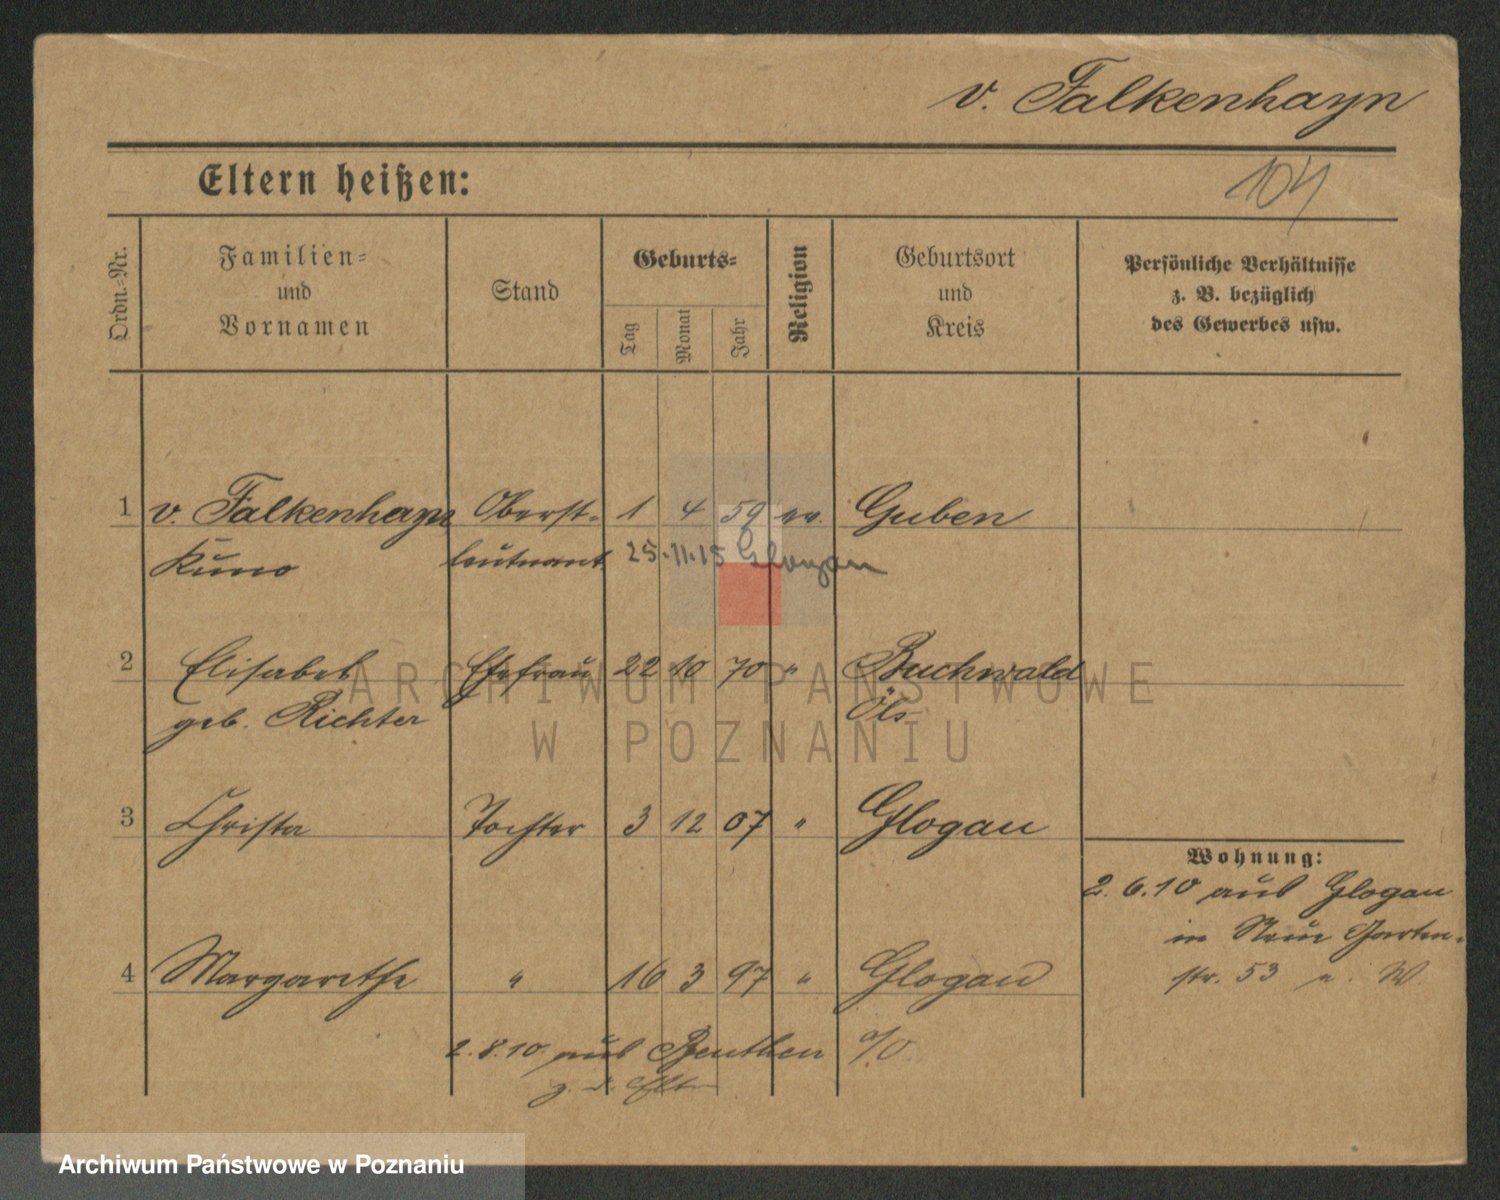 v. Falkenhayn
104
Eltern heißen:
Ordn.-Nr.
Familien-
und
Vornamen
Stand
Geburts-
Tag
Monat
Jahr
Religion
Geburtsort
und
Kreis
Persönliche Verhältnisse
z. B. bezüglich
des Gewerbes usw.
1 v. Falkenhayn Oberst- 1 4 59 ev. Guben
Kuno leutnant 25.11.15 Glogau
2 Elisabet Ehefrau 22 10 70 " Buchwald
geb. Richter Öls
3 Christa Tochter 3 12 07 " Glogau
Wohnung:
2. 6. 10 aus Glogau
in Neue Garten-
str. 53 W.
4 Margarethe " 16 3 97 " Glogau
2.8.10 aus Beuthen a/O.
z. d. Eltern
ARCHIWUM PAŃSTWOWE
W POZNANIU
Archiwum Państwowe w Poznaniu